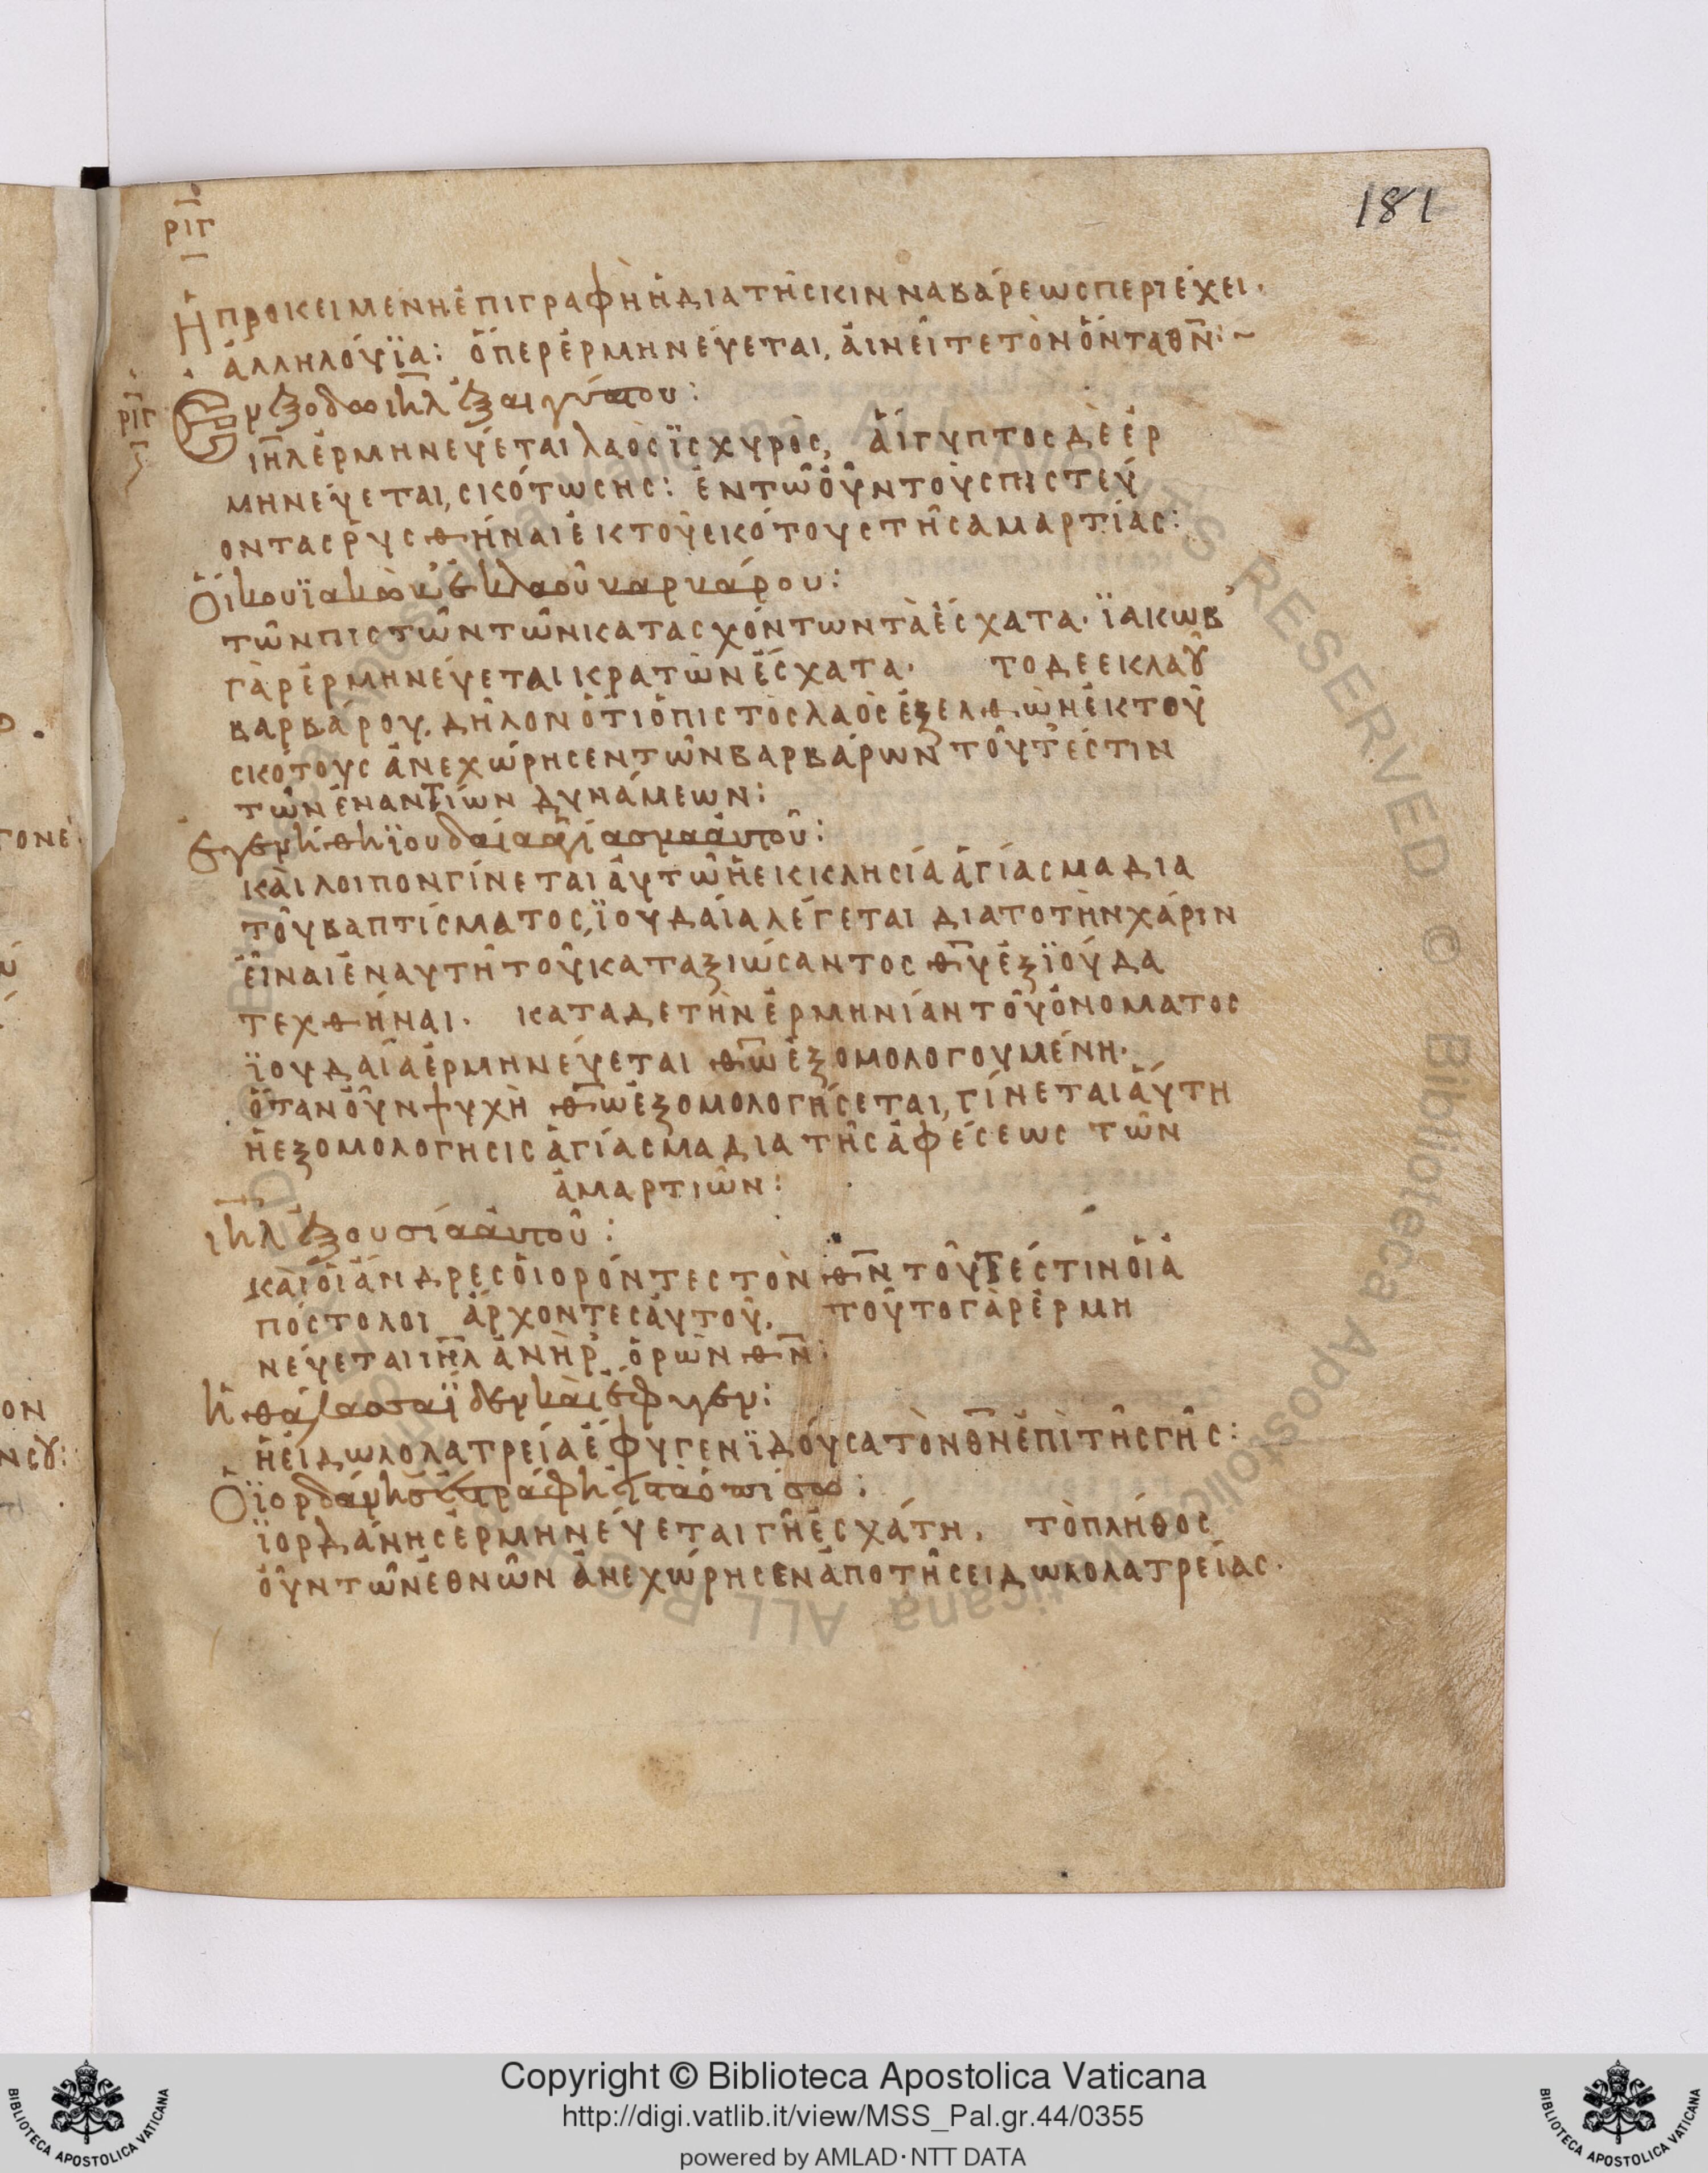 181
ριγ
Ἡ προκειμένη ἐπιγραφὴ ἡ διὰ τῆς κινναβάρεως περιέχει·
ἀλληλούϊα: ὅπερ ἑρμηνεύεται, αἰνεῖτε τὸν ὄντα θν̅:~
ριγ Ἐν ἐξόδω ιηλ ἐξ αιγύπτου:
ιηλ ἑρμηνεύεται λαὸς ϊσχυρός, ἄιγυπτος δὲ ἑρ
μηνεύεται, σκότωσης: ἐν τῶ οὖν τοὺς πιστεύ
οντας ρυσθήναι ἐκ τοῦ σκότους τῆς αμαρτίας:
Ὄικου ϊακὼβ ἐκ λαοῦ βαρβάρου:
τῶν πιστῶν τῶν κατασχόντων τὰ ἔσχατα· ϊακωβ
γὰρ ἑρμηνεύεται κρατῶν ἔσχατα· το δε εκ λαοῦ
βαρβάρου, δῆλον ὅτι ὁ πιστὸς λαὸς ἐξελθὼν ἐκ τοῦ
σκοτους ἀνεχώρησεν τῶν βαρβάρων τοῦτ' ἐστιν
τῶν ἐναντίων δυνάμεων:
Ἐγενήθη ϊουδαία ἁγίασμα ἀυτοῦ:
καὶ λοιπον γίνεται ἀυτῶ ἡ εκκλησία ἁγίασμα δια
τοῦ βαπτίσματος, ϊουδαία λέγεται δια το τὴν χάριν
εἶναι ἐν αυτῆ τοῦ καταξιώσαντος θυ̅ ἐξ ϊούδα
τεχθῆναι. κατα δε τὴν ἑρμηνίαν τοῦ ὀνοματος
ϊουδαία ἑρμηνεύεται θω̅ ἐξομολογουμένη·
ὅταν οὖν ψυχὴ θω̅ ἐξομολογήσεται, γίνεται ἀύτη
ἡ εξομολογησις ἁγίασμα δια τῆς ἀφέσεως τῶν
ἁμαρτιῶν:
ιηλ ἐξουσία ἀυτοῦ:
καὶ οἱ ἄνδρες οἱ ορόντες τὸν θν̅ τοῦτέστιν οἱ ἀ
πόστολοι ἄρχοντες ἀυτοῦ, τοῦτο γὰρ ἑρμη
νεύεται ιηλ ἀνὴρ ὁρὼν θν̅:
ἡ θάλασσα ϊδεν καὶ ἔφυγεν:
ἡ ἐιδωλολατρεία ἔφυγεν ϊδοῦσα τὸν θν̅ ἐπὶ τῆς γῆς:
Ὁ ϊορδάνης ἐστράφη ἐις τὰ ὀπίσω:
ϊορδάνης ἑρμηνεύεται γῆ ἐσχάτη, τὸ πλῆθος
οὖν τῶν ἐθνῶν ἀνεχώρησεν ἀπο τῆς ειδωλολατρείας·
Copyright © Biblioteca Apostolica Vaticana
http://digi.vatlib.it/view/MSS_Pal.gr.44/0355
powered by AMLAD·NTT DATA